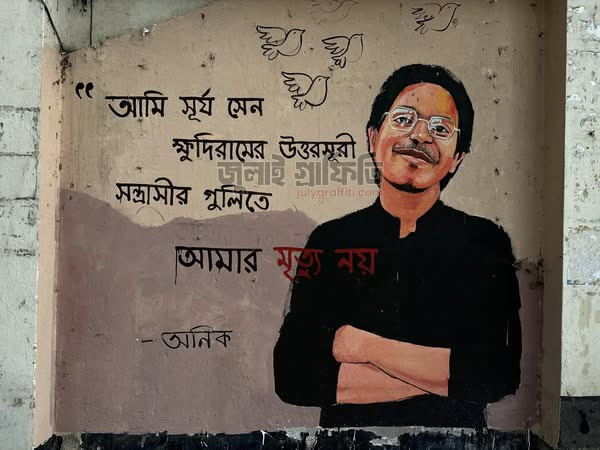 “ আমি সূর্য সেন
ক্ষুদিরামের উত্তরসূরী
জুলাই গ্রাফিতি
julygraffiti.com
সন্ত্রাসীর গুলিতে
আমার মৃত্যু নয়
- অনিক